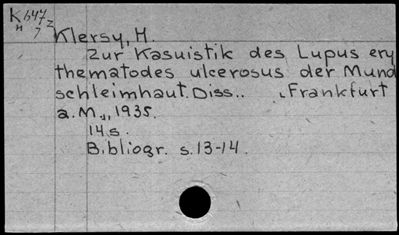 Klersy, H.
Zur Kasuistik des Lupus ery
thematodes ulcerosus der Mund
schleimhaut. Diss.. , Frankfurt
a. M., 1935.
14 s.
Bibliogr. s. 13-14.